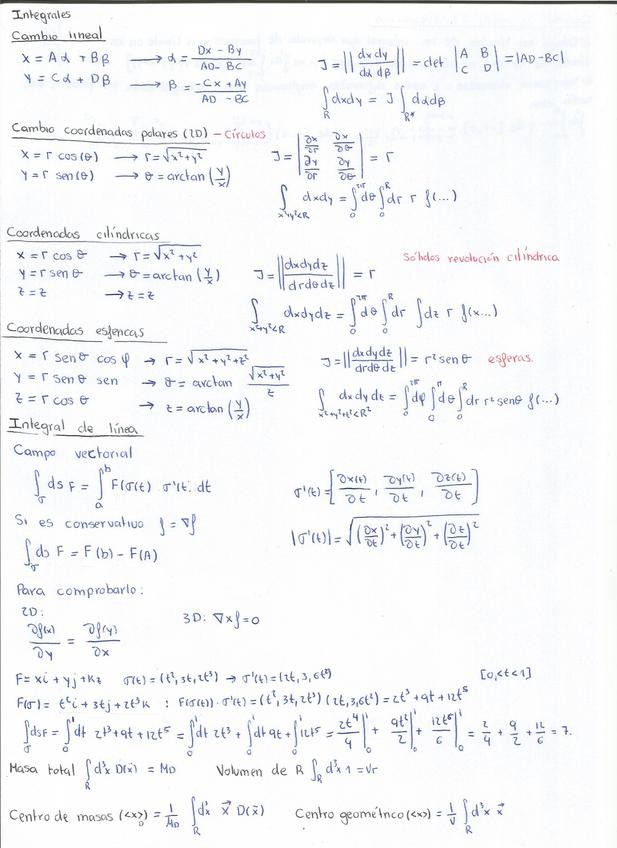 Integrales
Cambio lineal
x = Aα + Bβ → α = (Dx - By)/(AD - BC)
y = Cα + Dβ → β = (-Cx + Ay)/(AD - BC)
J = ||dxdy/dα dβ|| = det |A B; C D| = |AD - BC|
∫_R dxdy = J ∫_R* dαdβ
Cambio coordenadas polares (2D) - Círculos
x = r cos(θ) → r = √(x² + y²)
y = r sen(θ) → θ = arctan(y/x)
J = |∂x/∂r ∂x/∂θ; ∂y/∂r ∂y/∂θ| = r
∫_{x²+y²<R} dxdy = ∫_0^{2π} dθ ∫_0^R dr r f(...)
Coordenadas cilíndricas
x = r cos θ → r = √(x² + y²)
y = r sen θ → θ = arctan(y/x)
z = z → z = z
J = ||dxdydz/drdθdz|| = r
Sólidos revolución cilíndrica
∫_{x²+y²<R} dxdydz = ∫_0^{2π} dθ ∫_0^R dr ∫dz r f(x...)
Coordenadas esfericas
x = r senθ cos φ → r = √(x² + y² + z²)
y = r senθ sen → θ = arctan √(x² + y²)/z
z = r cos θ → z = arctan(y/x)
J = ||dxdydz/drdθdz|| = r² senθ esferas.
∫_{x²+y²+z²<R²} dxdydz = ∫_0^{2π} dφ ∫_0^π dθ ∫_0^R dr r² senθ f(...)
Integral de línea
Campo vectorial
∫_σ ds F = ∫_a^b F(σ(t) σ'(t. dt
σ'(t) = [∂x(t)/∂t, ∂y(t)/∂t, ∂z(t)/∂t]
Si es conservativo f = ∇f
|σ'(t)| = √((∂x/∂t)² + (∂y/∂t)² + (∂z/∂t)²)
∫_σ ds F = F(b) - F(A)
Para comprobarlo:
2D:
3D: ∇xf = 0
∂f(x)/∂y = ∂f(y)/∂x
F = xi + yj + kz σ(t) = (t², 3t, 2t³) → σ'(t) = (2t, 3, 6t²) [0,<t<1]
F(σ) = t²i + 3tj + 2t³k : F(σ(t)) · σ'(t) = (t², 3t, 2t³)(2t, 3, 6t²) = 2t³ + 9t + 12t⁵
∫_σ dsF = ∫_0^1 dt 2t³ + 9t + 12t⁵ = ∫_0^1 dt 2t³ + ∫_0^1 dt 9t + ∫_0^1 12t⁵ = 2t⁴/4 |_0^1 + 9t²/2 |_0^1 + 12t⁶/6 |_0^1 = 2/4 + 9/2 + 12/6 = 7.
Masa total ∫_R d³x D(x̄) = M_D Volumen de R ∫_R d³x 1 = Vr
Centro de masas (<x>)_D = 1/M_D ∫_R d³x x⃗ D(x̄) Centro geométrico (<x>) = 1/V ∫_R d³x x⃗